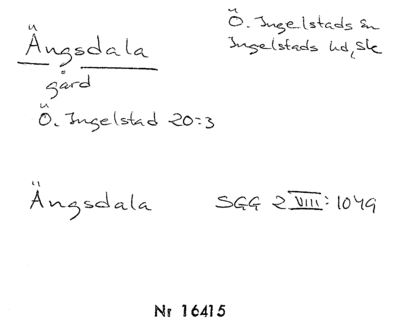 Ängsdala
Ö. Ingelstads sn
Ingelstads hd, Sk
gård
Ö. Ingelstad 20:3
Ängsdala SGG 2 VIII: 1049
Nr 16415